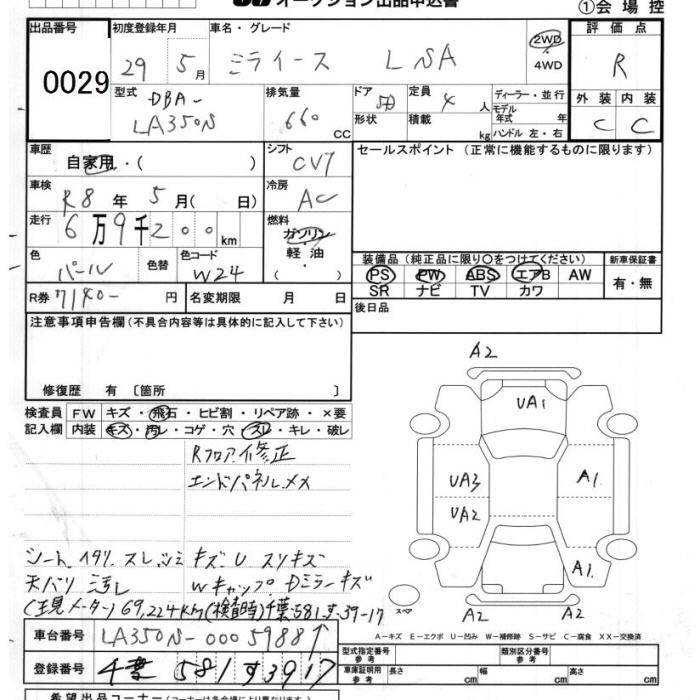 オークション出品申込書 ①会場控
出品番号 初度登録年月 車名・グレード 2WD 評価点
0029 29年 5月 ミライース L SA 4WD R
型式 排気量 ドア 定員 ディーラー・並行
DBA- 5D 4人 モデル年式 年 外装 内装
LA350N 660 CC 形状 積載 kg ハンドル 左・右 C C
車歴 シフト セールスポイント (正常に機能するものに限ります)
自家用・( ) CVT
車検 冷房
R8年 5月( 日) AC
走行 燃料
6万9千200km ガソリン
色 色替 色コード 軽油
パール W24 ・( )
装備品 (純正品に限り〇をつけてください) 新車保証書
PS PW ABS エアB AW 有・無
SR ナビ TV カワ
R券 7140- 円 名変期限 月 日 後日品
注意事項申告欄 (不具合内容等は具体的に記入して下さい)
修復歴 有 〔箇所 〕
検査員 FW キズ・飛石・ヒビ割・リペア跡・×要
記入欄 内装 キズ・汚レ・コゲ・穴・スレ・キレ・破レ
Rフロア修正
エンドパネルメメ
A2
UA1
UA3 A1
UA2
A1
A2 A2
スペア
シート ヘタリ スレ シミ キズ U スリキズ
天バリ 汚レ Wキャップ Dミラーキズ
69,224KM(検査時)千葉581す39-17
A-キズ E-エクボ U-凹み W-補修跡 S-サビ C-腐食 XX-交換済
車台番号 LA350N-0005988
型式指定番号 参考 類別区分番号 参考
登録番号 千葉 581 す 3917
車庫証明用 参考 長さ cm 幅 cm 高さ cm
希望出品コーナー